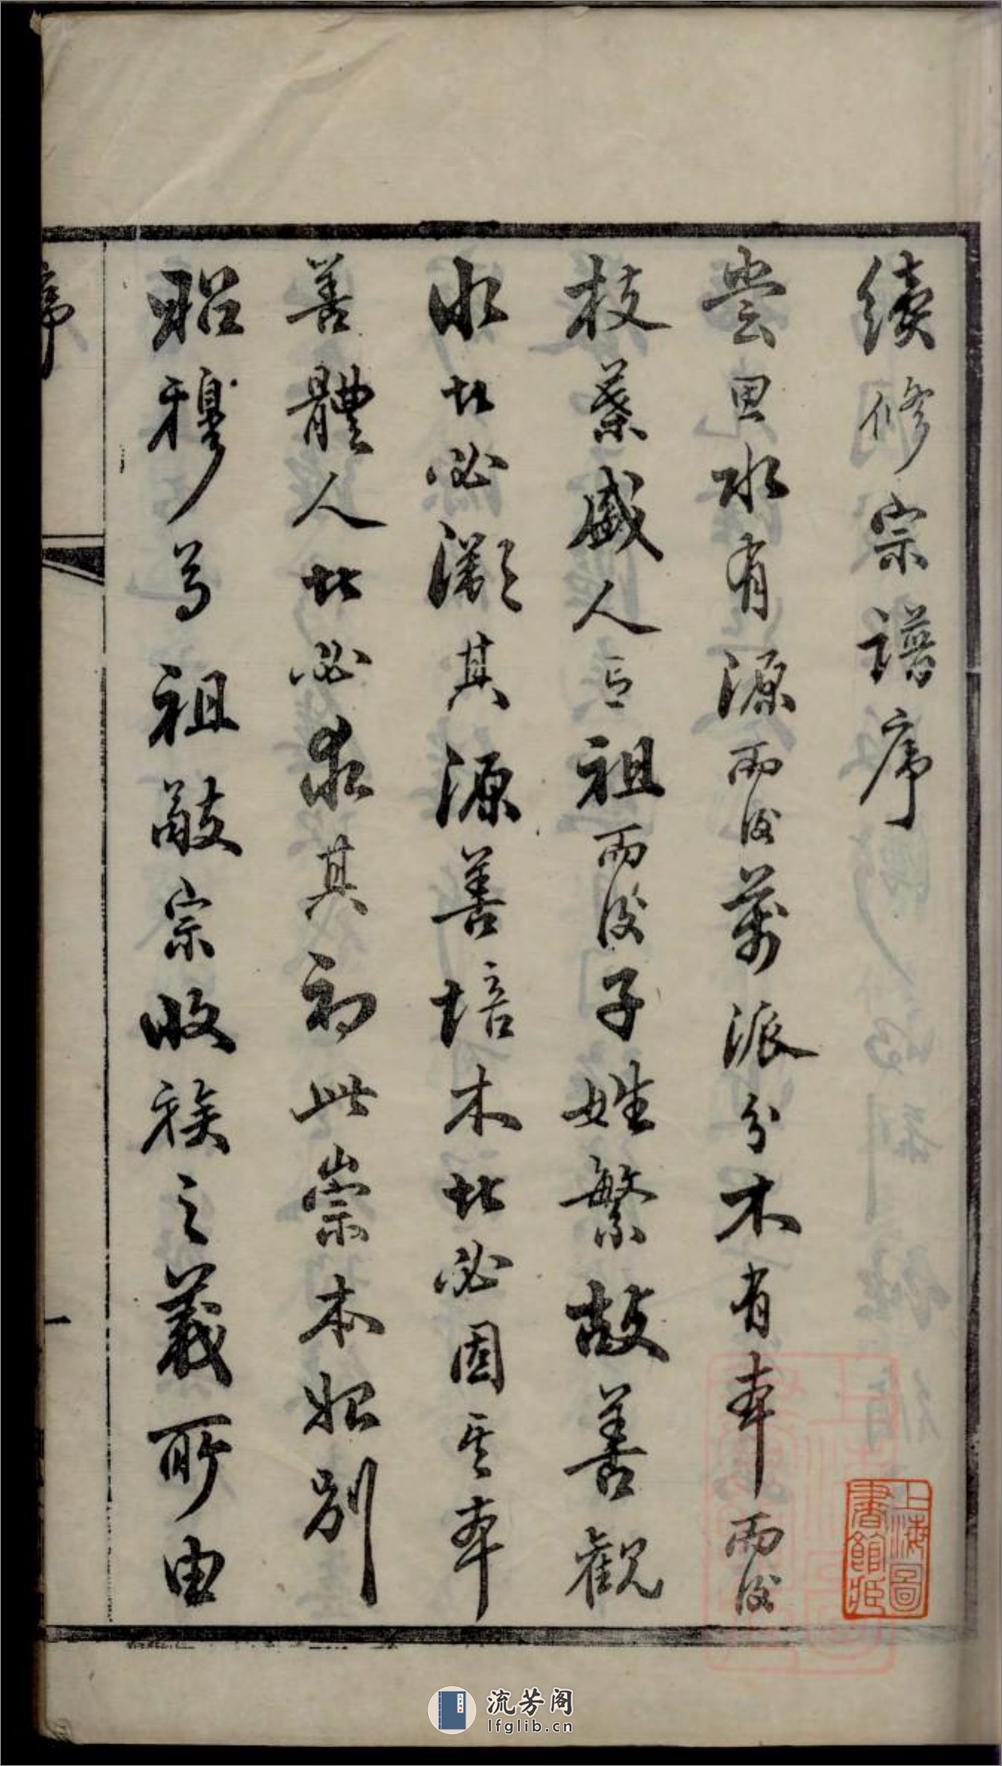 續修宗譜序
嘗思水有源而後萬派分木有本而後
枝葉盛人有祖而後子姓繁故善觀
水者必溯其源善培木者必固其本
善體人者必求其初此崇本
別
昭穆尊祖敬宗收族之義所由
序
一
上海圖
書館藏
流芳阁
lfglib.cn